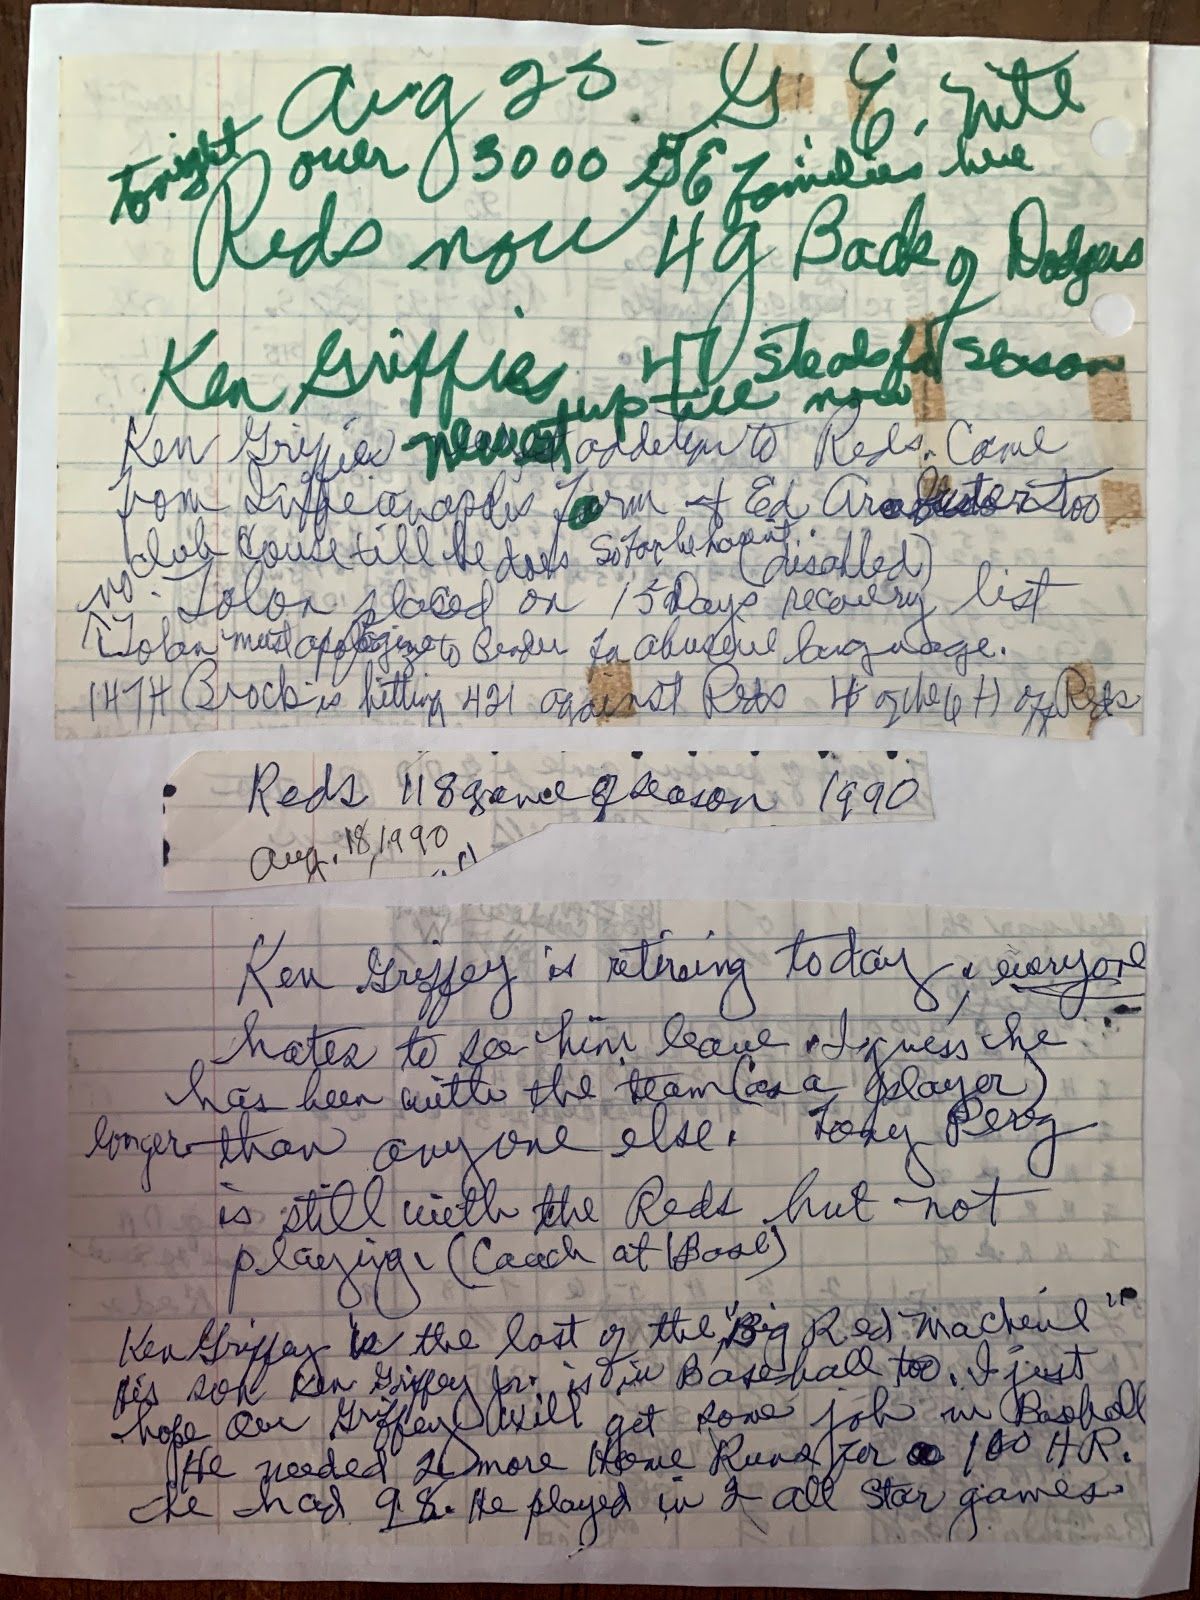 Aug 25 G. E. Nite
tonight over 3000 GE families here
Reds now 4 g Back of Dodgers
Ken Griffies 47 steals for season
up till now
Ken Griffie newest addetion to Reds. Came
from Indieanapolis Farm & Ed Armbrister too
club couse till he does so far he hasent
no. Tolon placed on 15 Days recovery list (disabled)
Tolan must apoligize to Bender for abuseive language.
1474 Brock is hitting 421 against Reds 4 of the 6 H off Reds
Reds 118 game of season 1990
Aug. 18, 1990
Ken Griffey is retiring today, & everyone
hates to see him leave. I guess he
has been with the team (as a player)
longer than anyone else. Tony Perez
is still with the Reds but not
playing. (Coach at 1 Base)
Ken Griffey is the last of the "Big Red Macheine"
His son Ken Griffey Jr. is in Baseball too. I just
hope our Griffey will get some job in Baseball
He needed 2 more Home Runs for a 100 HR.
He had 98. He played in 2 all Star games.